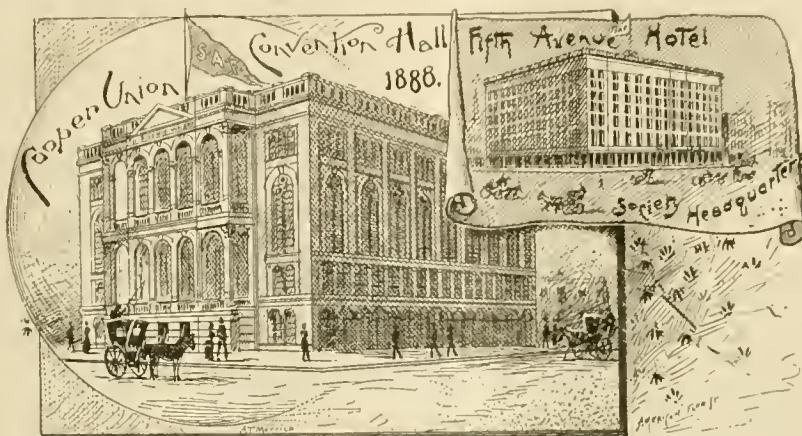 Cooper Union
Convention Hall
1888.
S.A.F.
Fifth Avenue Hotel
Society Headquarters
AMERICAN FLORIST